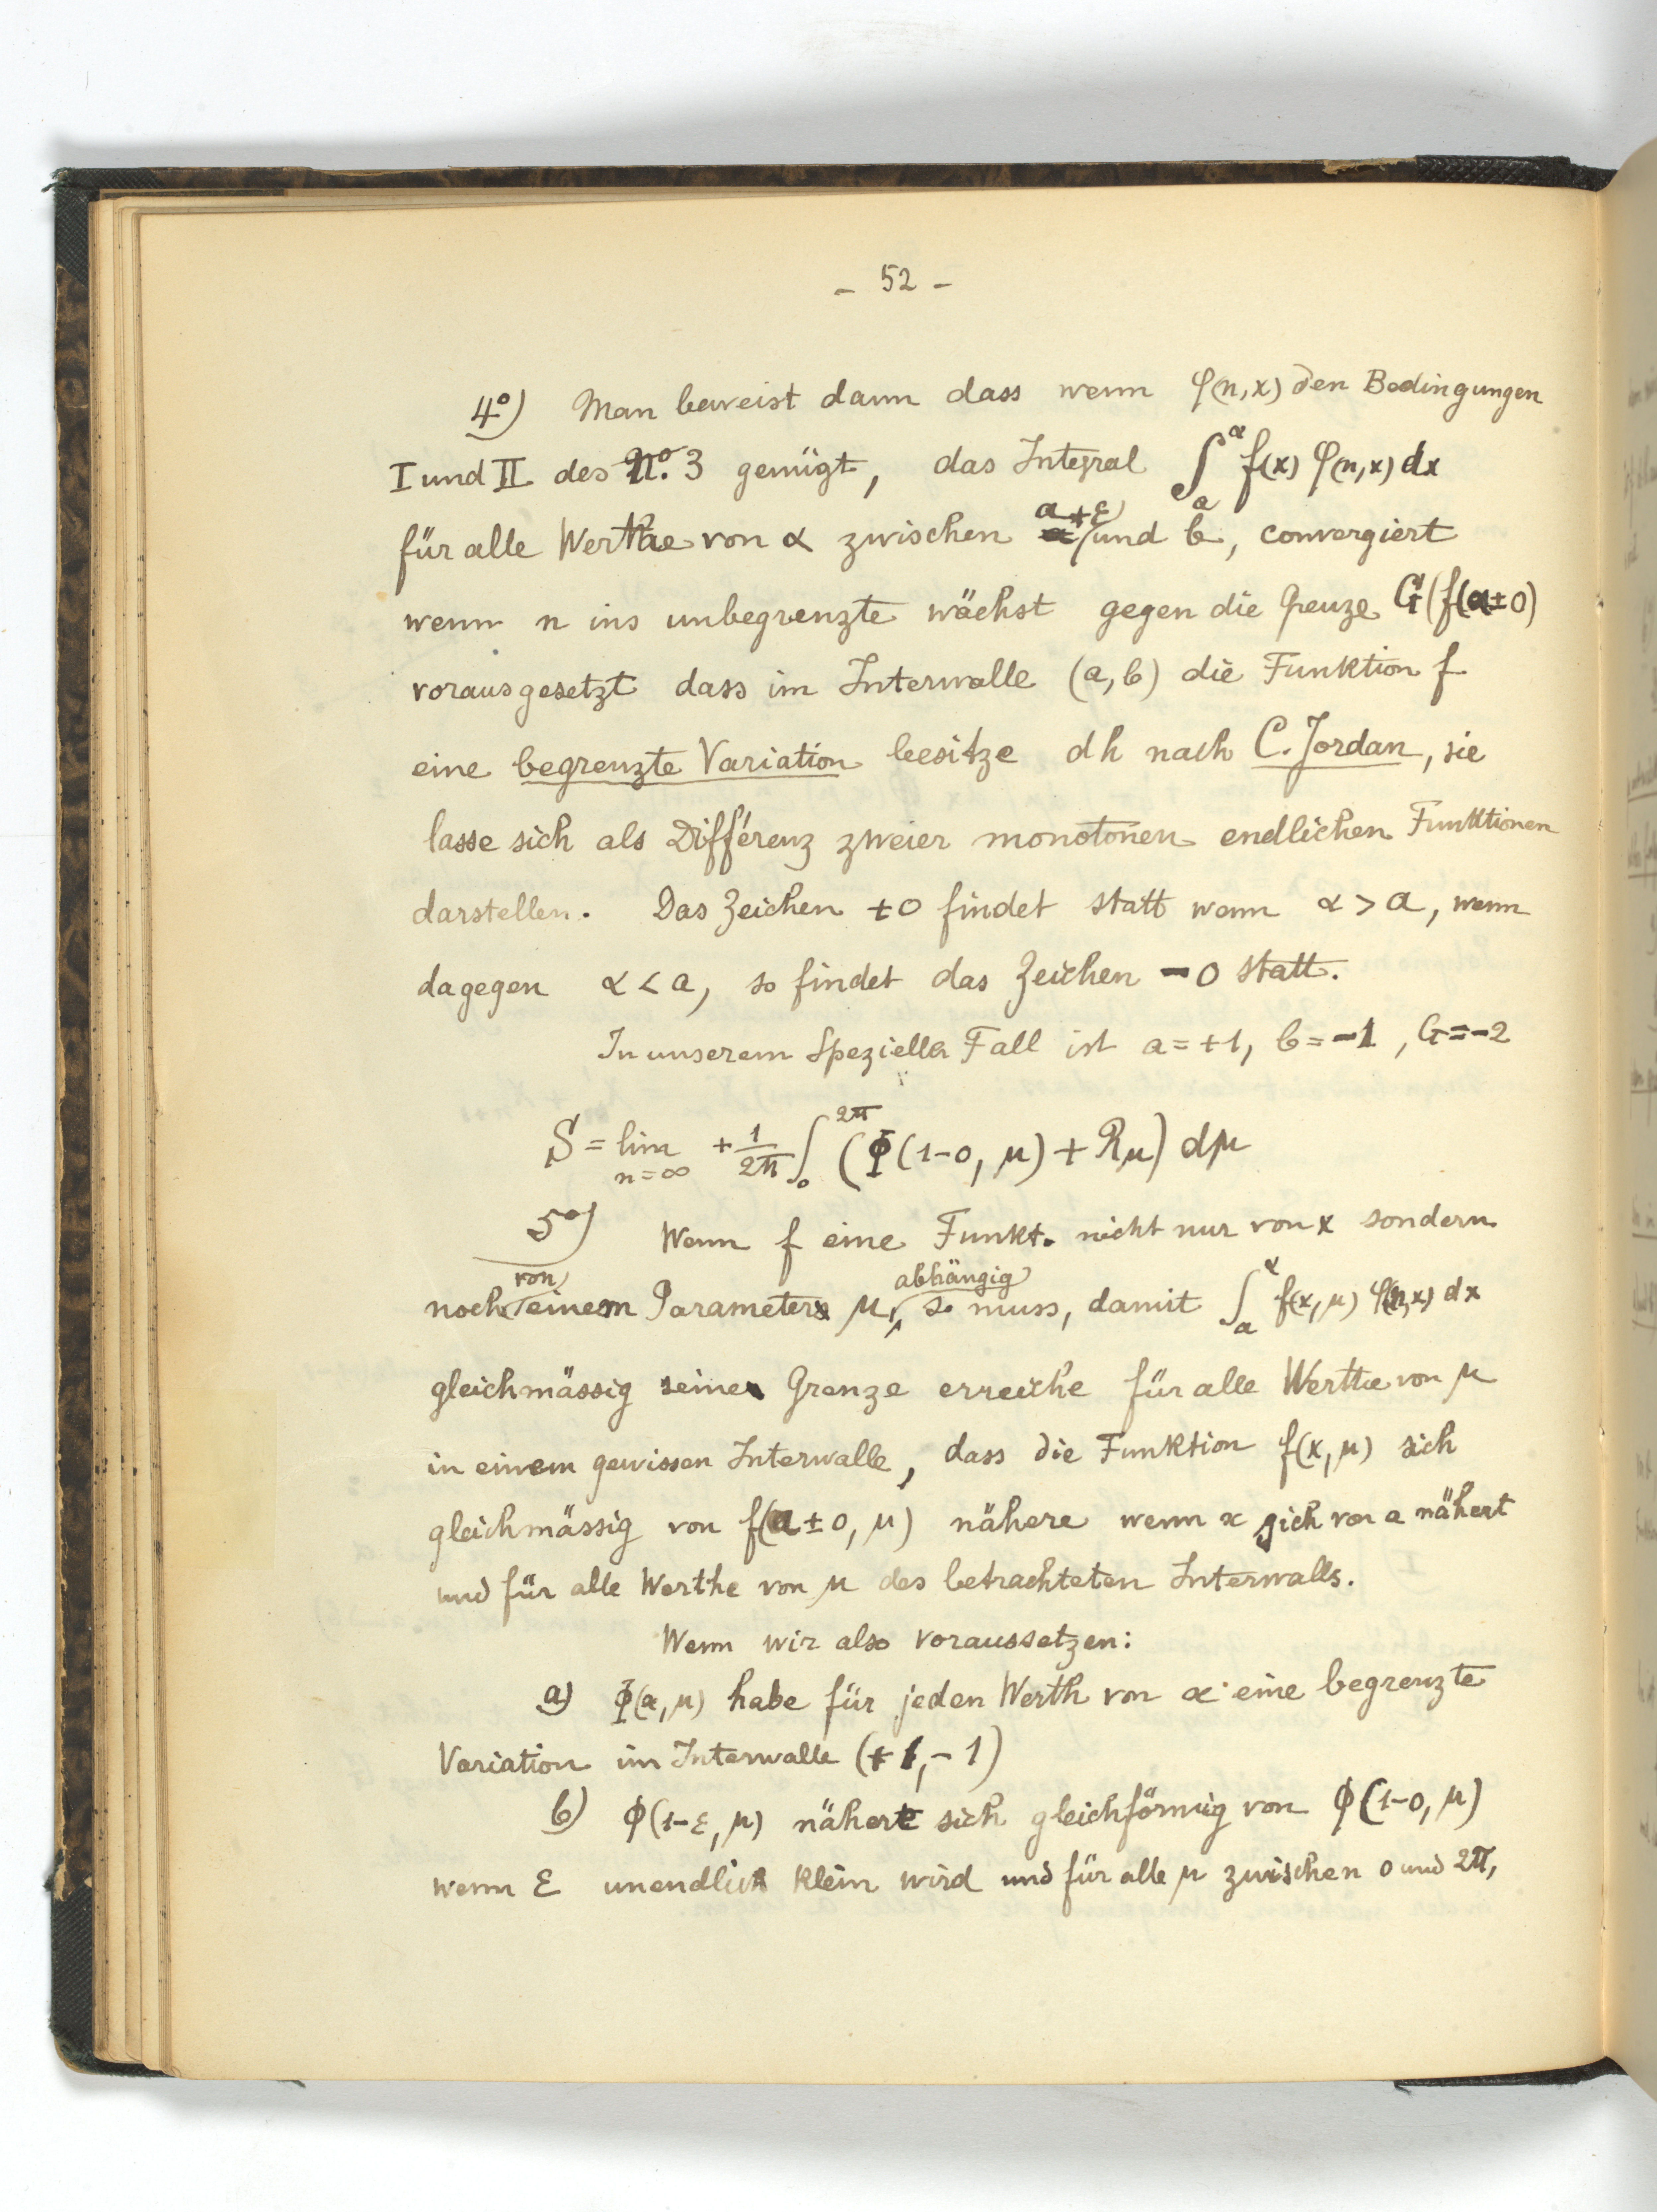 – 52 –
4°) Man beweist dann dass wenn φ(n,x) den Bedingungen
I und II des N°. 3 genügt, das Integral ∫ₐ^α f(x) φ(n,x) dx
für alle Werthe von α zwischen a+ε und b, convergiert
wenn n ins unbegrenzte wächst gegen die Grenze G(f(a±0)
vorausgesetzt dass im Interwalle (a,b) die Funktion f
eine begrenzte Variation besitze d h nach C. Jordan, sie
lasse sich als Differenz zweier monotonen endlichen Funktionen
darstellen. Das Zeichen +0 findet statt wenn α > a, wenn
dagegen α < a, so findet das Zeichen –0 statt.
In unserem Speziellen Fall ist a = +1, b = –1, G = –2
S = lim n=∞ + 1/2π ∫₀^2π (Φ(1–0, μ) + Rμ) dμ
5°) Wenn f eine Funkt. nicht nur von x sondern
noch von einem Parameter μ abhängig so muss, damit ∫ₐ^α f(x,μ) φ(n,x) dx
gleichmässig seine Grenze erreiche für alle Werthe von μ
in einem gewissen Interwalle, dass die Funktion f(x,μ) sich
gleichmässig von f(a±0, μ) nähere wenn x sich von a nähert
und für alle Werthe von μ des betrachteten Interwalls.
Wenn wir also voraussetzen:
a) Φ(α,μ) habe für jeden Werth von α eine begrenzte
Variation im Interwalle (+1, –1)
b) ϕ(1–ε, μ) nähert sich gleichförmig von ϕ(1–0, μ)
wenn ε unendlich klein wird und für alle μ zwischen 0 und 2π,